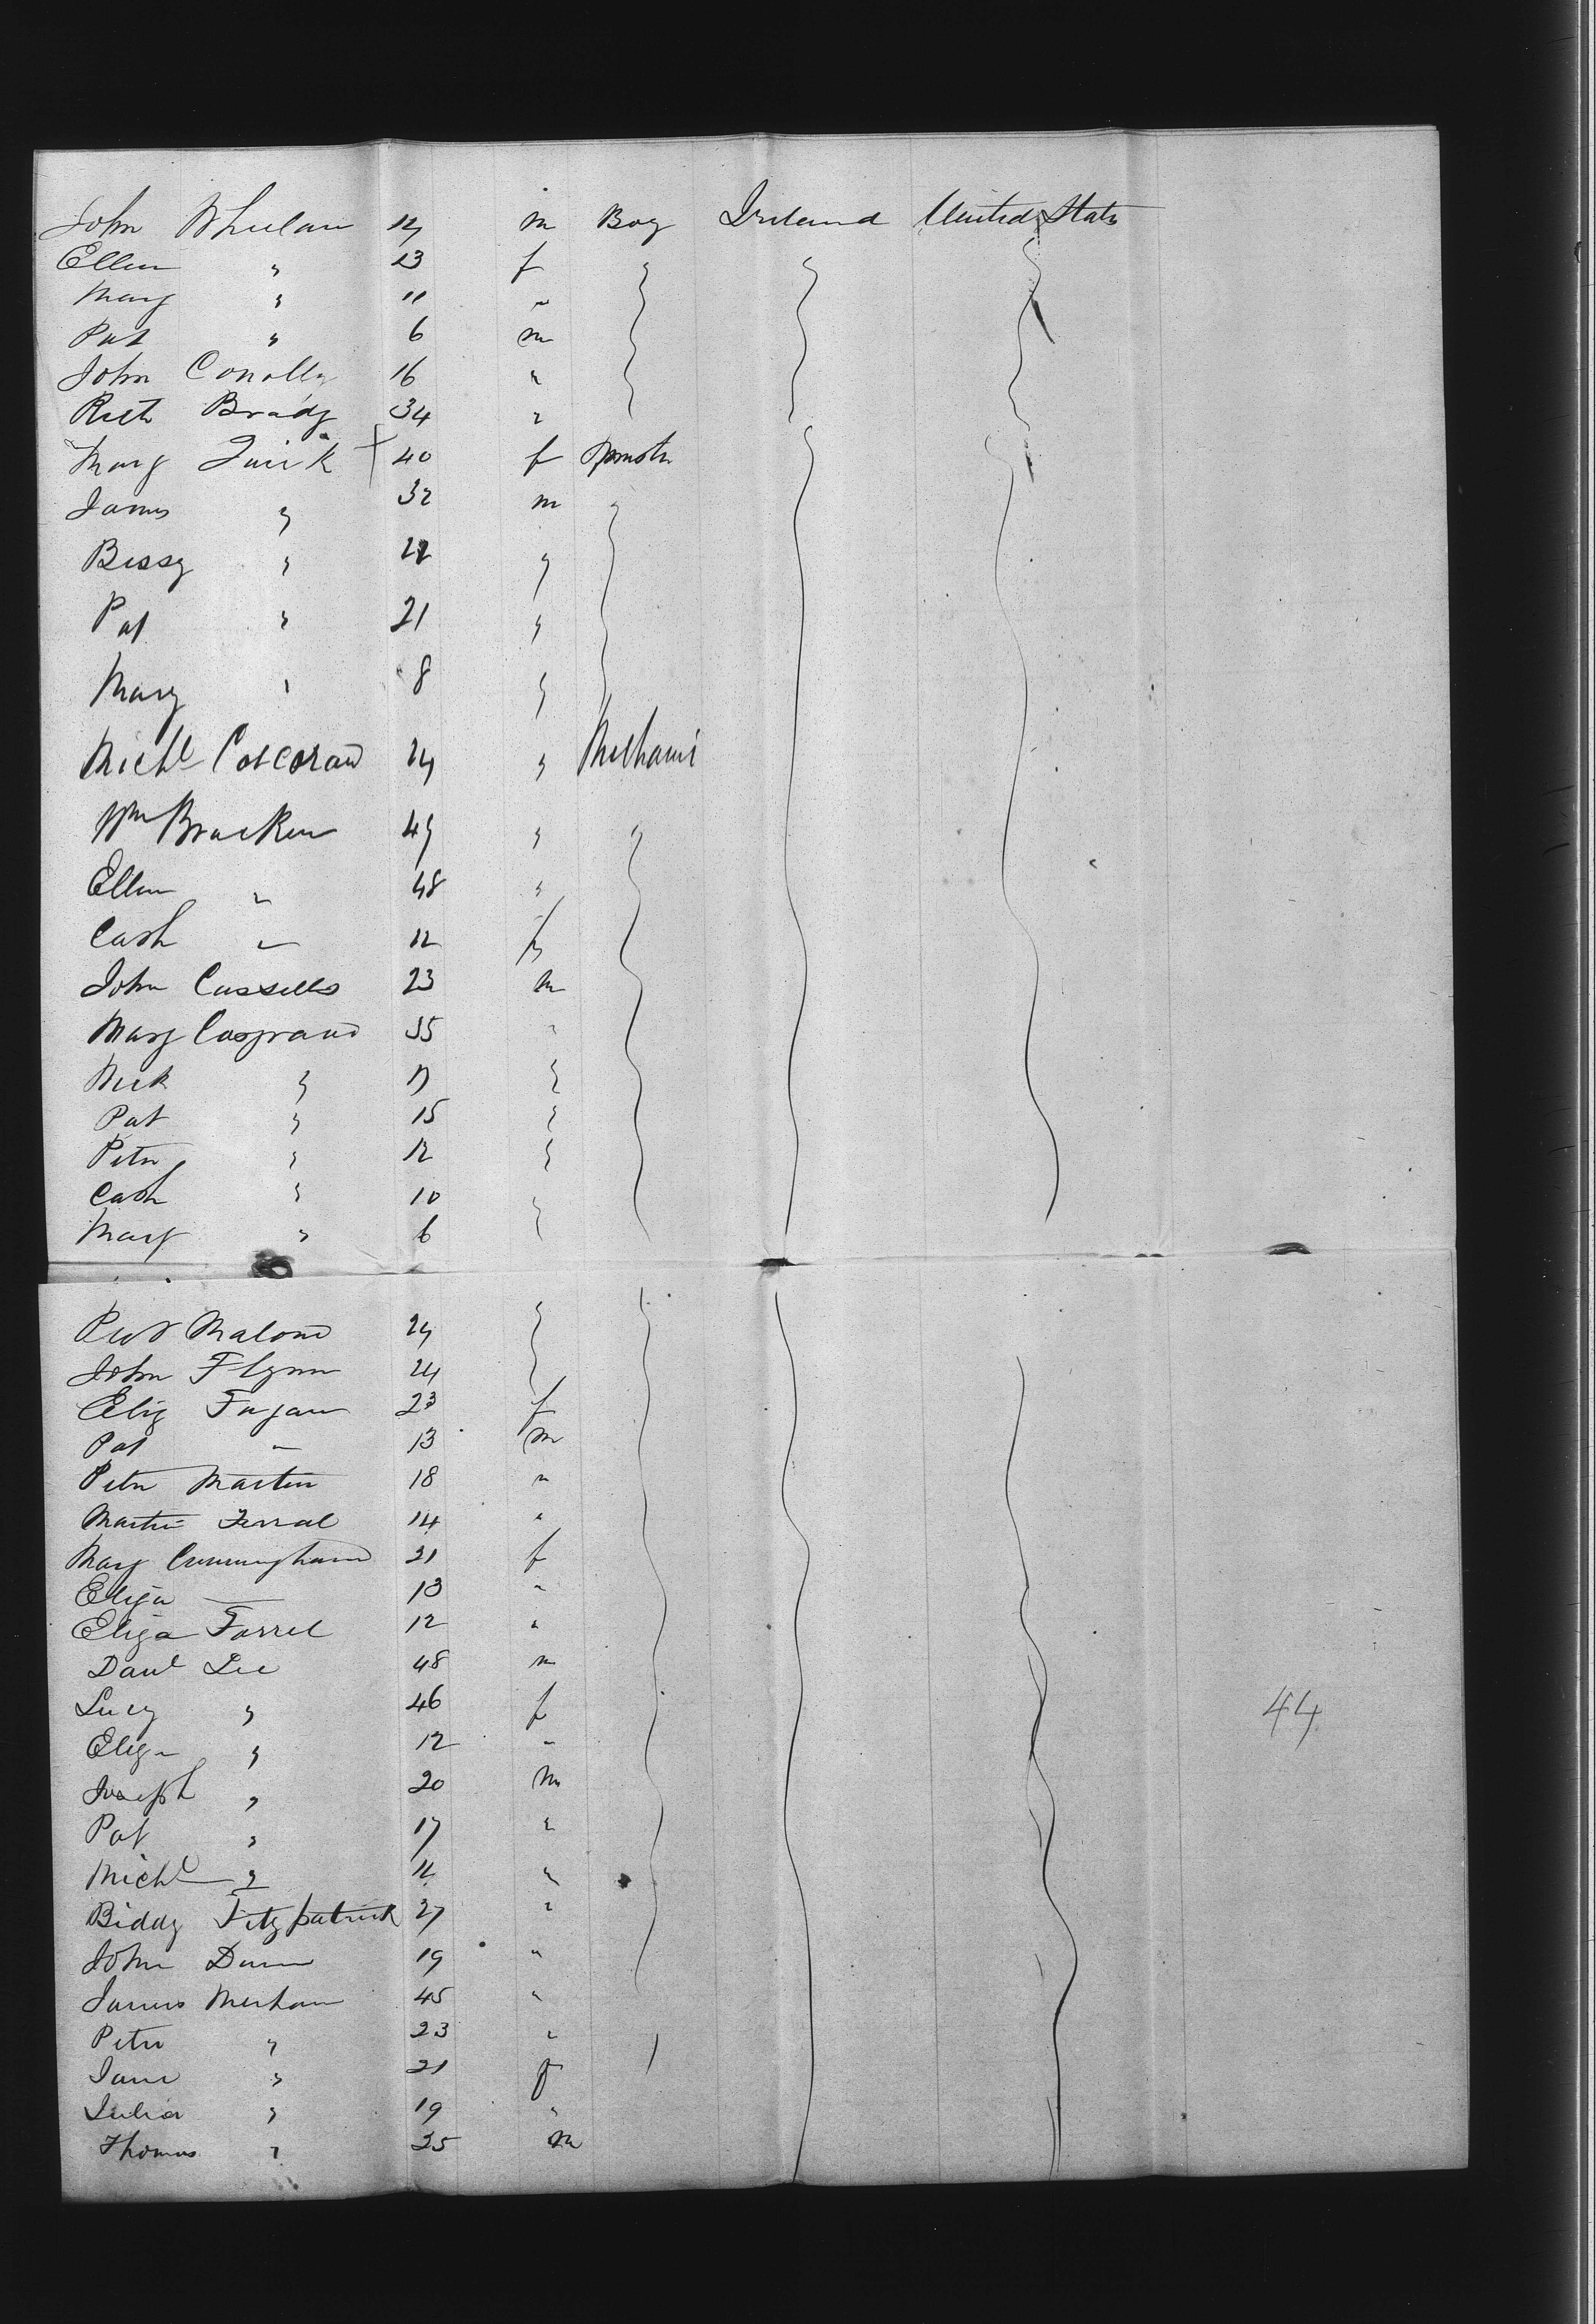 John Whelan 14 m Boy Ireland United States
Ellen " 13 f
Mary " 11 "
Pat " 6 m
John Conolly 16 "
Brady 34 "
Mary Quirk 40 f
James " 32 m
Bessy " 22 "
Pat " 21 "
Mary " 8 "
Michl Corcoran 24 " Mechanic
Wm Bracken 49 "
Ellen " 48 "
Cath " 12 f
John Cassells 23 m
Mary Cosgrave 35 "
Mick " 17 "
Pat " 15 "
Peter " 12 "
Cath " 10 "
Mary " 6
Malone 24
John Flynn 24
Eliz Fagan 23 f
Pat " 13 m
Peter Martin 18 "
Martin Farral 14 "
Mary Cunningham 21 f
Eliza — 13 "
Eliza Farrel 12 "
Danl Lee 48 m
Lucy " 46 f
Eliza " 12 "
Joseph " 20 m
Pat " 17 "
Michl " 11 "
Biddy Fitzpatrick 27 "
John Dunn 19 "
James Meehan 45 "
Peter " 23 "
Jane " 21 f
Julia " 19 "
Thomas " 25 m
44